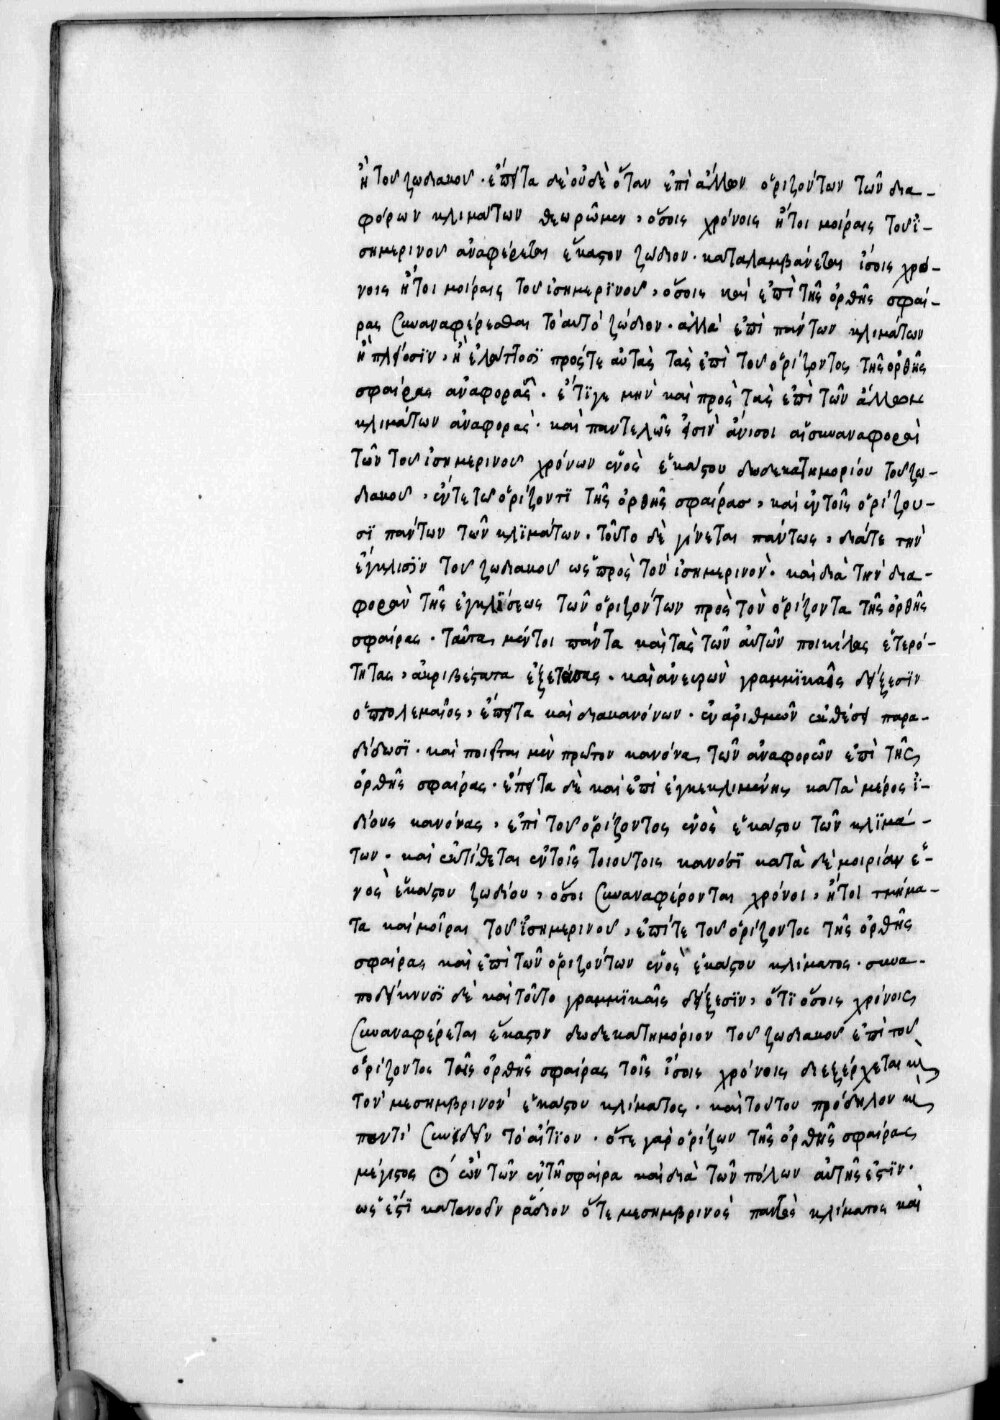 ἢ τοῦ ζωδιακοῦ · ἔπειτα δὲ οὐδὲ ὅταν ἐπὶ ἄλλων ὁριζόντων τῶν δια-
φόρων κλιμάτων θεωρῶμεν, ὅσοις χρόνοις ἤτοι μοίραις τοῦ ἰ-
σημερινοῦ ἀναφέρεται ἕκαστον ζώδιον · καταλαμβάνεται ἴσοις χρό-
νοις ἤτοι μοίραις τοῦ ἰσημερϊνοῦ, ὅσοις καὶ ἐπὶ τῆς ὀρθῆς σφαί-
ρας συναναφέρεσθαι τὸ αὐτὸ ζώδιον · ἀλλὰ ἐπὶ πάντων κλιμάτων
ἢ πλείοσϊν, ἢ ἐλάττοσϊ πρός τε αὐτὰς τὰς ἐπὶ τοῦ ὁρίζοντος τῆς ὀρθῆς
σφαίρας ἀναφοράς · ἔτϊ γε μὴν καὶ πρὸς τὰς ἐπὶ τῶν ἄλλων
κλιμάτων ἀναφοράς · καὶ παντελῶς εἰσὶν ἄνισοι αἱ συναναφοραὶ
τῶν τοῦ ἰσημερινοῦ χρόνων ἑνὸς ἑκάστου δωδεκατημορίου τοῦ ζω-
διακοῦ, ἔν τε τῷ ὁρίζοντϊ τῆς ὀρθῆς σφαίρας, καὶ ἐν τοῖς ὁρίζου-
σϊ πάντων τῶν κλϊμάτων · τοῦτο δὲ γίνεται πάντως, διά τε τὴν
ἔγκλισϊν τοῦ ζωδιακοῦ ὡς πρὸς τὸν ἰσημερινὸν · καὶ διὰ τὴν δια-
φορὰν τῆς ἐγκλίσεως τῶν ὁριζόντων πρὸς τὸν ὁρίζοντα τῆς ὀρθῆς
σφαίρας · ταῦτα μέντοι πάντα καὶ τὰς τῶν αὐτῶν ποικίλας ἑτερό-
τητας, ἀκριβέστατα ἐξετάσας · καὶ ἀνευρὼν γραμμϊκαῖς δείξεσϊν
ὁ πτολεμαῖος, ἔπειτα καὶ διὰ κανόνων · ἐν ἀριθμῶν ἐκθέσει παρα-
δίδωσϊ · καὶ ποιεῖται μὲν πρῶτον κανόνα τῶν ἀναφορῶν ἐπὶ τῆς
ὀρθῆς σφαίρας · ἔπειτα δὲ καὶ ἐπὶ ἐγκεκλιμένης κατὰ μέρος ἰ-
δίους κανόνας, ἐπὶ τοῦ ὁρίζοντος ἑνὸς ἑκάστου τῶν κλϊμά-
των · καὶ ἐκτίθεται ἐν τοῖς τοιούτοις κανόσϊ κατὰ δὲ μοιρίαν ἑ-
νὸς ἑκάστου ζωδίου, ὅσοι συναναφέρονται χρόνοι, ἤτοι τμήμα-
τα καὶ μοῖραι τοῦ ἰσημερινοῦ, ἐπί τε τοῦ ὁρίζοντος τῆς ὀρθῆς
σφαίρας καὶ ἐπὶ τῶν ὁριζόντων ἑνὸς ἑκάστου κλίματος · συνα-
ποδείκνυσϊ δὲ καὶ τοῦτο γραμμϊκαῖς δείξεσϊν, ὅτϊ ὅσοις χρόνοις
συναναφέρεται ἕκαστον δωδεκατημόριον τοῦ ζωδιακοῦ ἐπὶ τοῦ
ὁρίζοντος τῆς ὀρθῆς σφαίρας τοῖς ἴσοις χρόνοις διεξέρχεται καὶ
τὸν μεσημβρινὸν ἑκάστου κλίματος · καὶ τούτου πρόδηλον καὶ
παντὶ συνιδεῖν τὸ αἴτϊον · ὅ τε γὰρ ὁρίζων τῆς ὀρθῆς σφαίρας
μέγιστος ☉ ὢν τῶν ἐν τῇ σφαίρα καὶ διὰ τῶν πόλων αὐτῆς ἐστϊν ·
ὡς ἔστϊ κατανοεῖν ῥάδιον ὅ τε μεσημβρινὸς παντὸς κλίματος καὶ